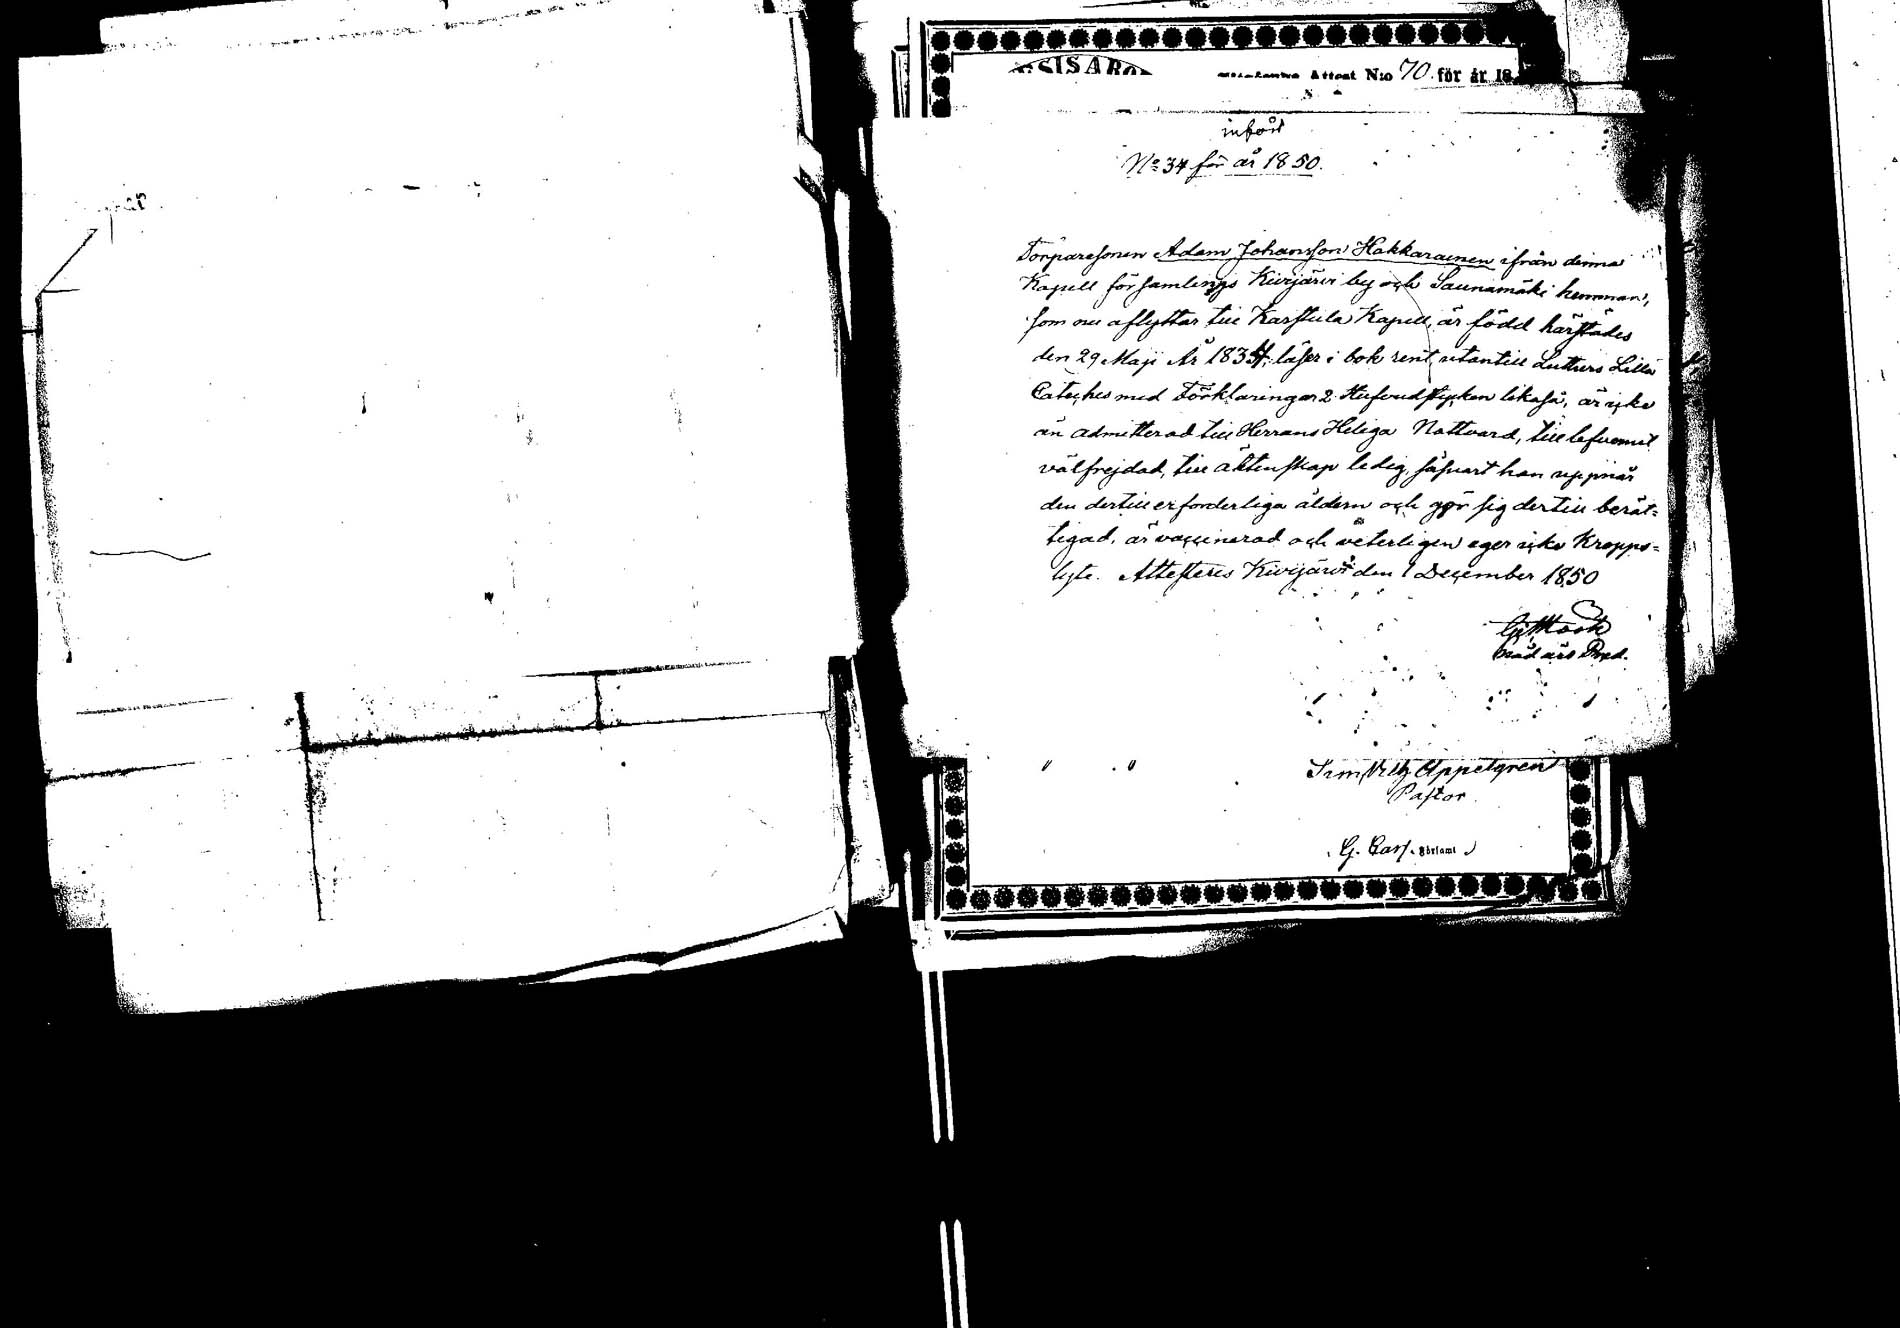 Attest N:o 70 för år 18
införd
No 34 för år 1850.
Torparesonen Adam Johansson Hakkarainen ifrån denna
Kapell församlings Kivijärvi by och Saunamäki hemman,
som nu aflyttar till Karstula Kapell, är född härstädes
den 29 Maji År 1834, läser i bok rent, utantill Luthers Lilla
Cateches med Förklaringar 2 Hufvudstycken likaså, är icke
än admitterad till Herrans Heliga Nattvard, till lefvernet
välfrejdad, till äktenskap ledig, såsnart han uppnår
den dertill erforderliga åldern och gör sig dertill berät=
tigad, är vaccinerad och veterligen eger icke Kropps=
lyte. Attesteris Kivijärvi den 1 December 1850
G. Mask
nåd års Pred.
" "
Appelgren
Pastor